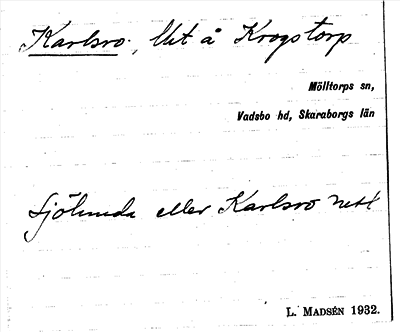 Karlsro, lht å Krogstorp
Mölltorps sn,
Vadsbo hd, Skaraborgs län
Sjölunda eller Karlsro
L. MADSÉN 1932.